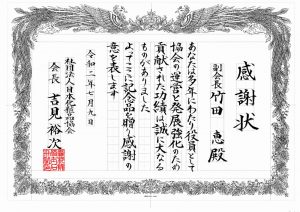 感謝状
副会長 竹田 恵殿
あなたは多年にわたり役員として
協会の運営と発展強化のため
貢献された功績は誠に大なる
ものがありました
よってここに記念品を贈り感謝の
意を表します
令和二年七月九日
社団法人日本化粧品協会
会長 吉見裕次